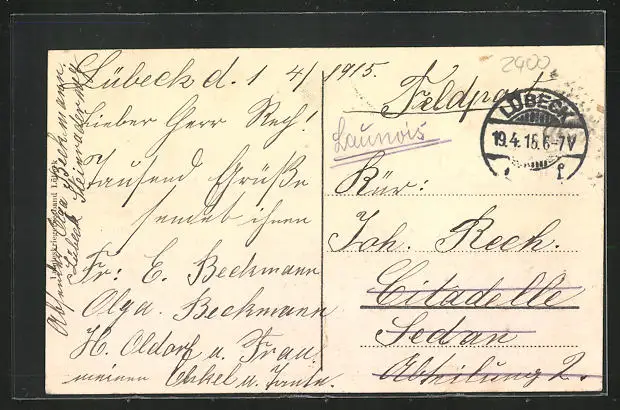 Lübeck d. 1 4/ 1915.
Lieber Herr Rech!
Tausend Grüße
sendet ihnen
Fr: E. Beckmann
Olga. Beckmann
H. Oldorf u. Frau.
meinen Onkel u. Tante.
Absender Olga Beckmann.
Lübeck
2900
Feldpost
LÜBECK
19.4.15.6-7V
Launois
Für:
Joh. Rech.
Citadelle
Sedan
Abteilung 2.